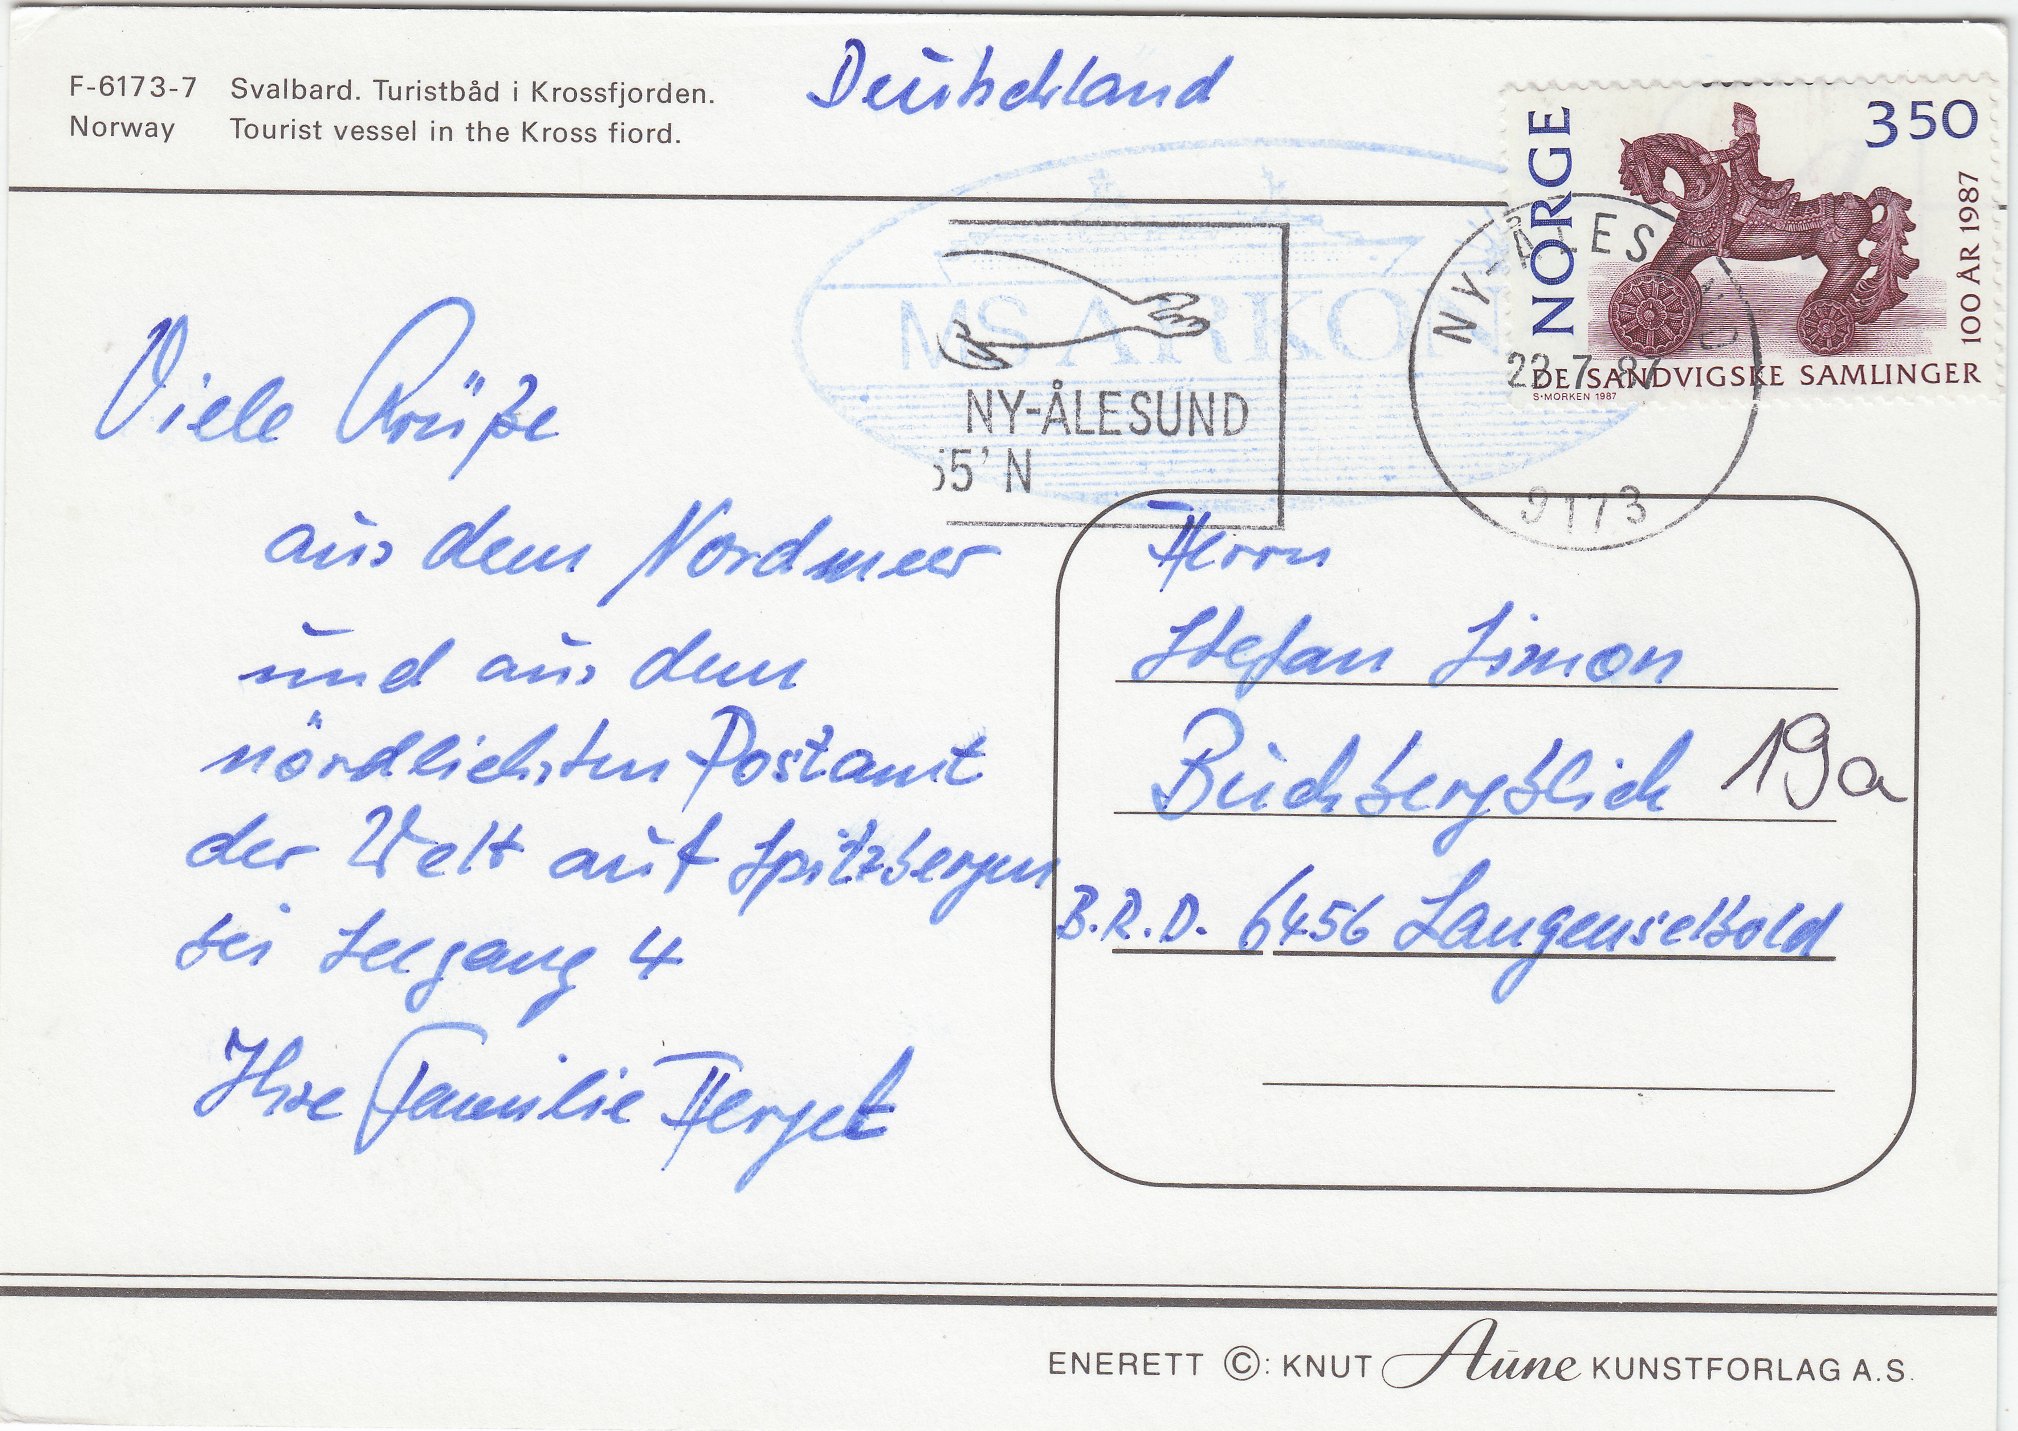 F-6173-7 Svalbard. Turistbåd i Krossfjorden.
Norway Tourist vessel in the Kross fiord.
Deutschland
NORGE
350
100 ÅR 1987
DE SANDVIGSKE SAMLINGER
S·MORKEN 1987
NY-ÅLESUND
22.7.87
9173
MS ARKON
NY-ÅLESUND
55' N
Viele Grüße
aus dem Nordmeer
und aus dem
nördlichsten Postamt
der Welt auf Spitzbergen
bei Seegang 4
Ihre Familie Herget
Herrn
Stefan Simon
Buchbergblick 19a
B.R.D. 6456 Langenselbold
ENERETT ©: KNUT Aune KUNSTFORLAG A.S.